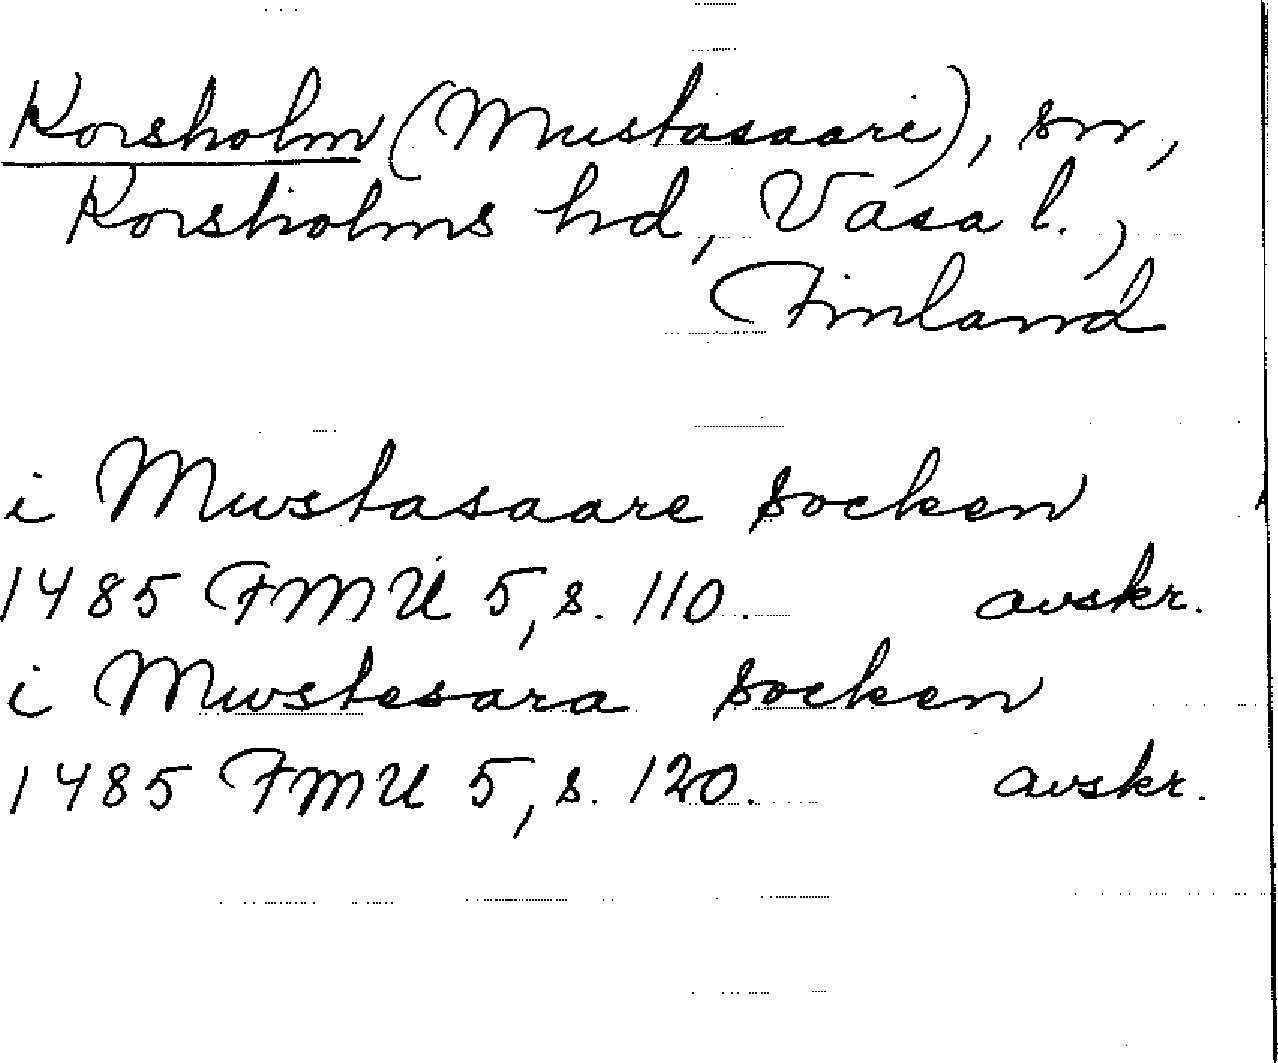 Korsholm (Mustasaari), sn,
Korsholms hd, Vasa l.,
Finland
i Mwstasaare socken
1485 FMU 5, s. 110. avskr.
i Mwstesara socken
1485 FMU 5, s. 120. avskr.